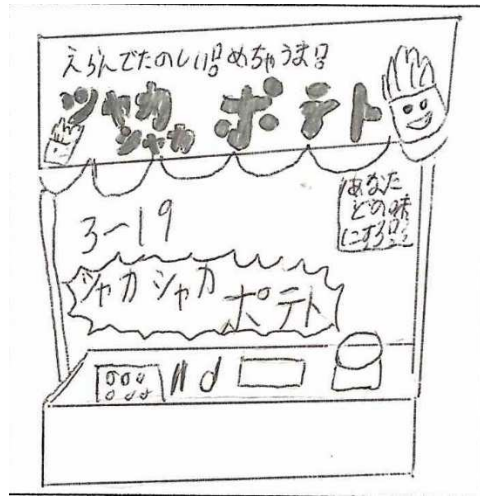 えらんでたのしい!!めちゃうま!!
シャカシャカポテト
あなた
どの味
にする!?
3-19
シャカシャカ
ポテト